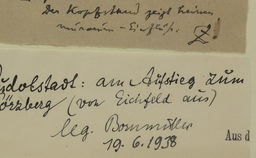 Der Kopfstand zeigt keinen
Einfluß.
udolstadt: am Aufstieg zum
örzberg (von Eichfeld aus)
leg. Bornmüller
19. 6. 1938
Aus d